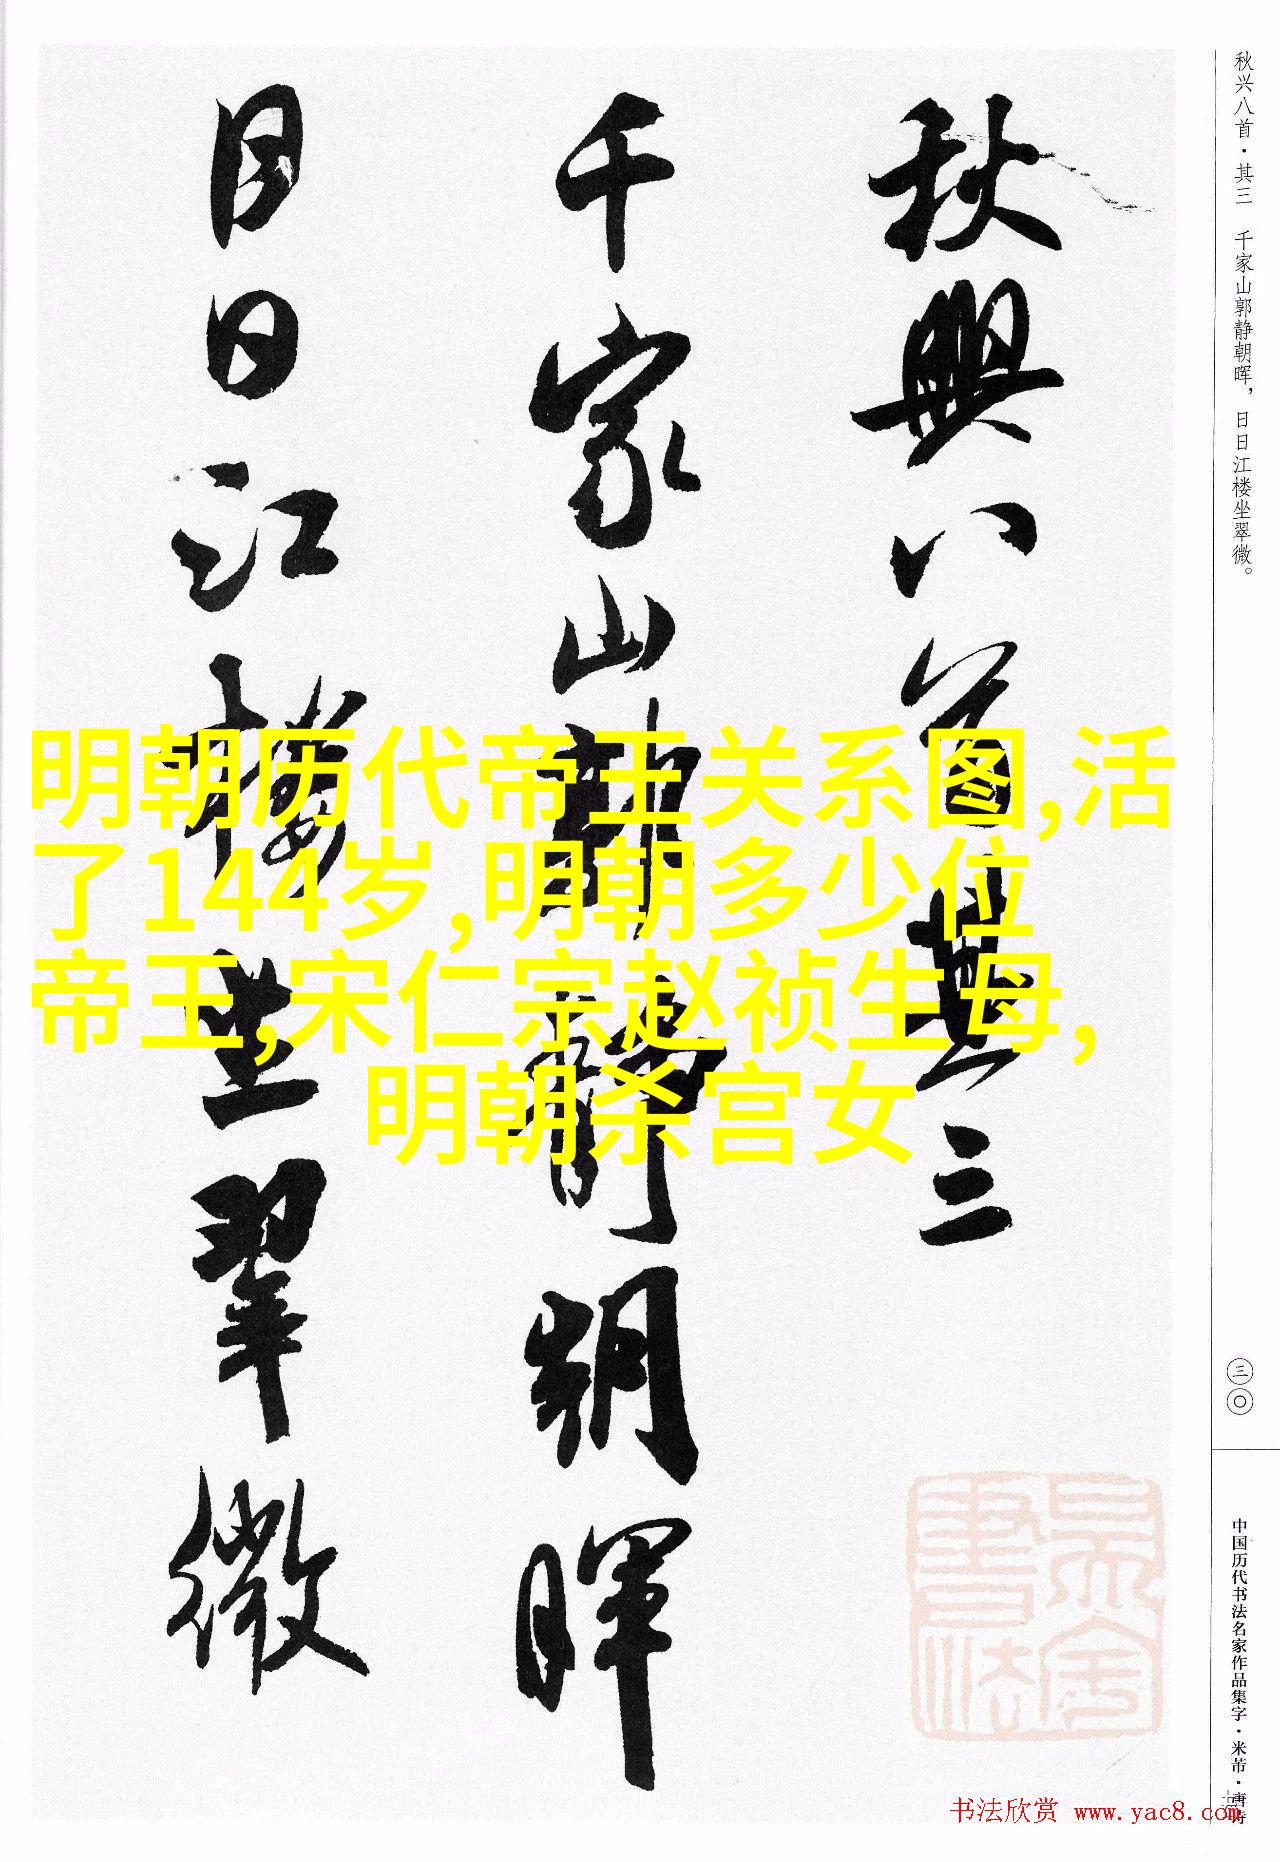 秋兴八首·其三 千家山郭静朝晖，日日江楼坐翠微。
三〇
中国历代书法名家作品集字·米芾·唐诗
秋興八首其三
千家山郭靜朝暉
日日江樓坐翠微
明朝历代帝王关系图,活
了144岁,明朝多少位
帝王,宋仁宗赵祯生母,
明朝杀宫女
书法欣赏 www.yac8.com